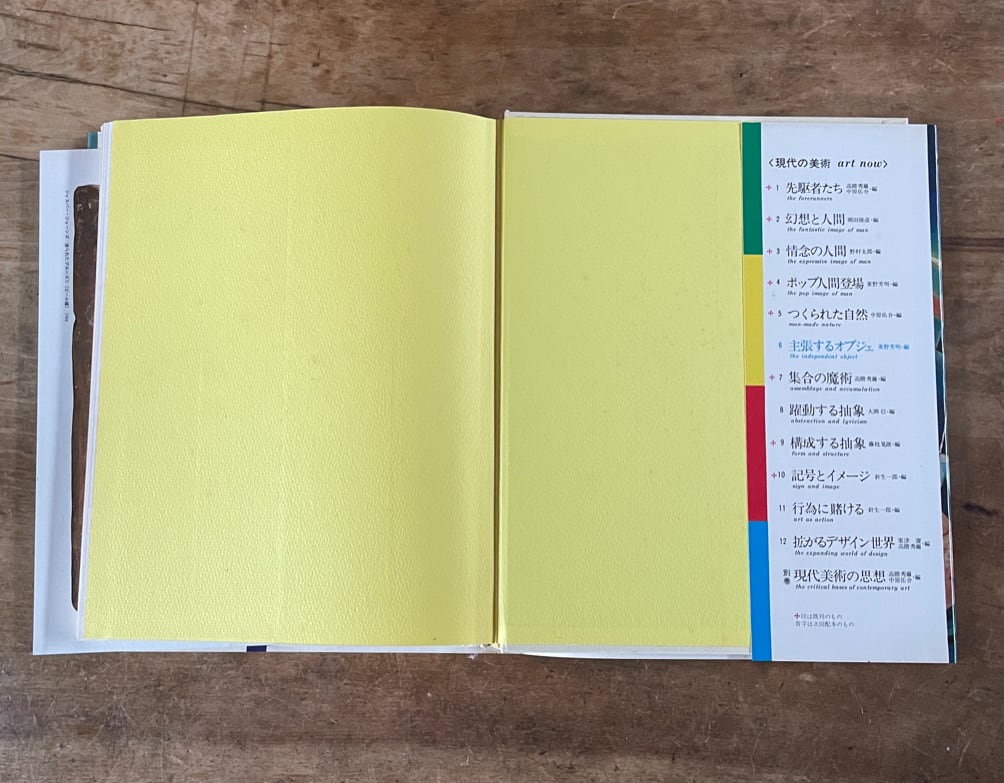 〈現代の美術 art now〉
✢ 1 先駆者たち 高階秀爾 中原佑介・編
the forerunners
✢ 2 幻想と人間 岡田隆彦・編
the fantastic image of man
✢ 3 情念の人間 野村太郎・編
the expressive image of man
✢ 4 ポップ人間登場 東野芳明・編
the pop image of man
✢ 5 つくられた自然 中原佑介・編
man-made nature
6 主張するオブジェ 東野芳明・編
the independent object
✢ 7 集合の魔術 高階秀爾・編
assemblage and accumulation
8 躍動する抽象 大岡 信・編
abstraction and lyricism
✢ 9 構成する抽象 藤枝晃雄・編
form and structure
✢10 記号とイメージ 針生一郎・編
sign and image
11 行為に賭ける 針生一郎・編
art as action
12 拡がるデザイン世界 粟津 潔 高階秀爾・編
the expanding world of design
別巻 現代美術の思想 高階秀爾 中原佑介・編
the critical bases of contemporary art
✢印は既刊のもの
青字は次回配本のもの